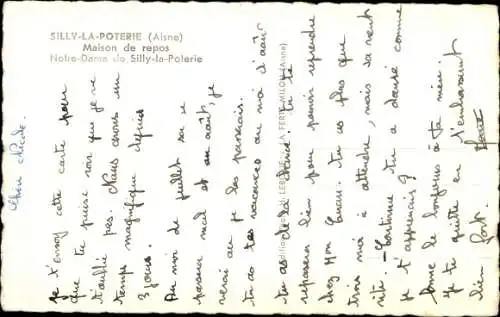 SILLY-LA-POTERIE (Aisne)
Maison de repos
Notre-Dame de Silly-la-Poterie
Chère Nicole.
Je t'envoy cette carte pour
que tu puisse voir que je ne
t'oublié pas. Nous avons un
temps magnifique depuis
3 jours.
Au moi de juillet sa ce
passera mal et au août, je
verai au je les passerais.
tu as tes vacances au moi d'août
tu as de la chance tu te
reposera bien pour pouvoir reprendre
chez Mon tu as plus que
trois moi à attendre, mais sa vient
vite. - Continue tu a dansé comme
je t'apprenais?
Donne le bonjours à ta mère.
Je te quitte en t'embrassant
bien fort.
LA FERTE-MILON (Aisne)